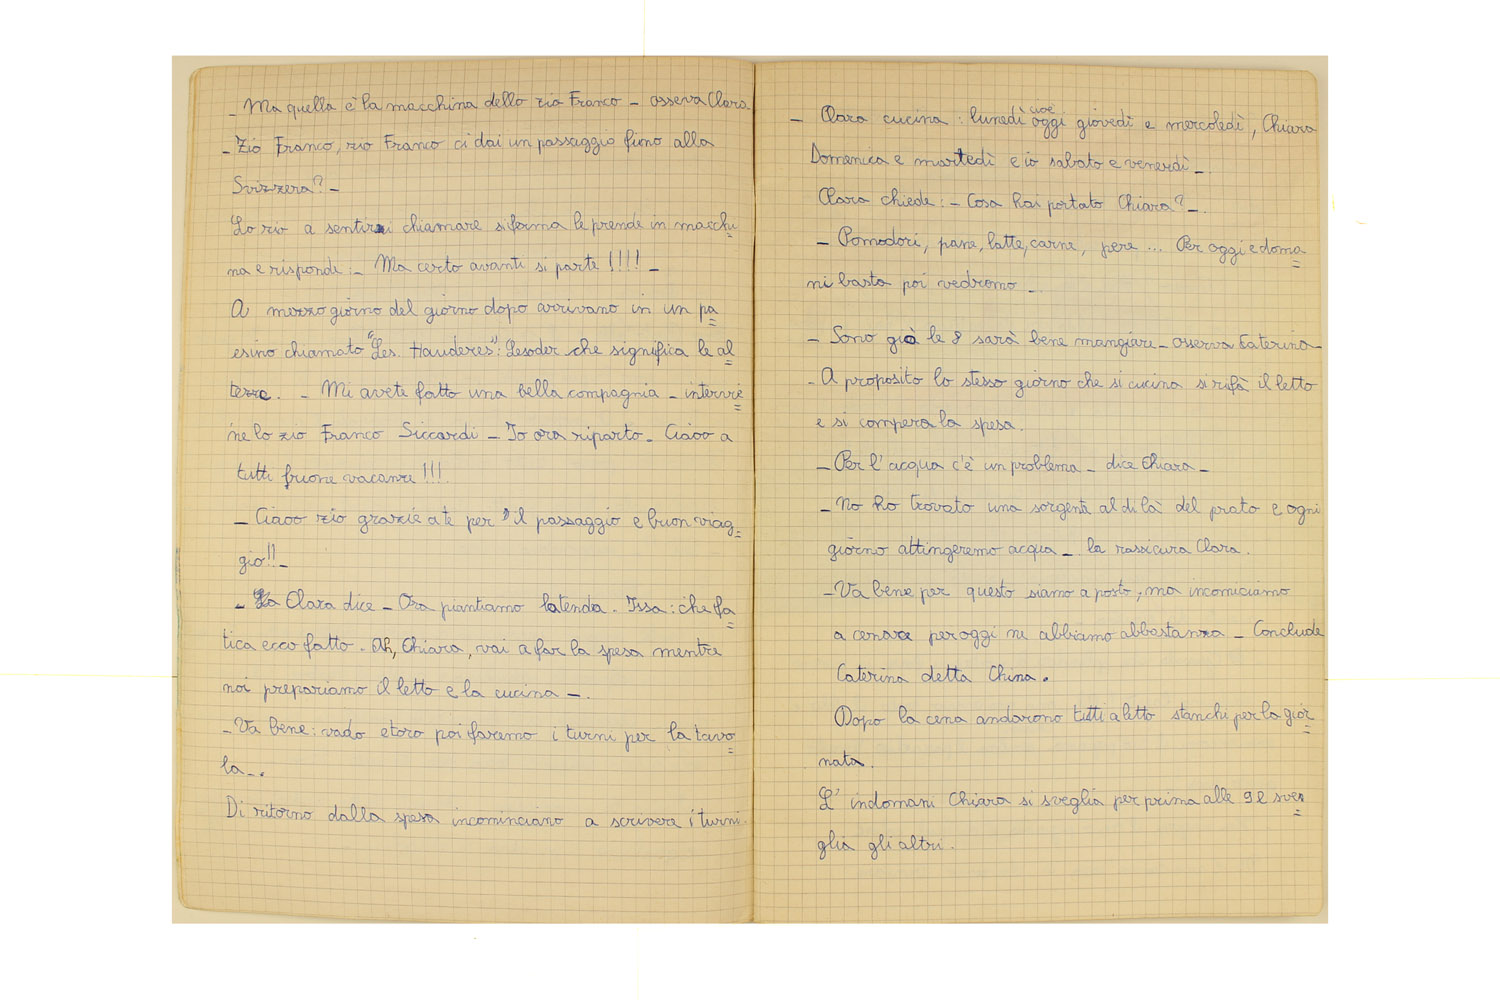 _ Ma quella è la macchina dello zio Franco _ osseva Clara
_ Zio Franco, zio Franco ci dai un passaggio fino alla
Svizzera? _
Lo zio a sentirsi chiamare si ferma le prende in macchi
na e risponde : _ Ma certo avanti si parte !!!! _
A mezzo giorno del giorno dopo arrivano in un pa
esino chiamato "Les. Hauderes": Lesoder che significa le al
terre. _ Mi avete fatto una bella compagnia _ intervie
ne lo zio Franco Siccardi _ Io ora riparto _ Ciaoo a
tutti buone vacanze !!!.
_ Ciaoo zio grazie a te per il passaggio e buon viag
gio!! _
_ Clara dice _ Ora piantiamo la tenda . Issa : che fa
tica ecco fatto . Ah, Chiara, vai a far la spesa mentre
noi prepariamo il letto e la cucina _ .
_ Va bene : vado e toro poi faremo i turni per la tavo
la _ .
Di ritorno dalla spesa incominciano a scrivere i turni.
_ Clara cucina : lunedì cioè oggi giovedì e mercoledì, Chiara
Domenica e martedì e io sabato e venerdì _ .
Clara chiede : _ Cosa hai portato Chiara? _ .
_ Pomodori, pane, latte, carne, pere ... Per oggi e doma
ni basta poi vedremo _ .
_ Sono già le 8 sarà bene mangiare _ osserva Caterina _
_ A proposito lo stesso giorno che si cucina si rifà il letto
e si compera la spesa .
_ Per l'acqua c'è un problema _ dice Chiara _
_ No ho trovato una sorgente al di là del prato e ogni
giorno attingeremo acqua _ . la rassicura Clara .
_ Va bene per questo siamo a posto, ma incominciamo
a cenare per oggi ne abbiamo abbastanza _ Conclude
Caterina detta China .
Dopo la cena andarono tutti a letto stanchi per la gior
nata .
L' indomani Chiara si sveglia per prima alle 9 e sve
glia gli altri .